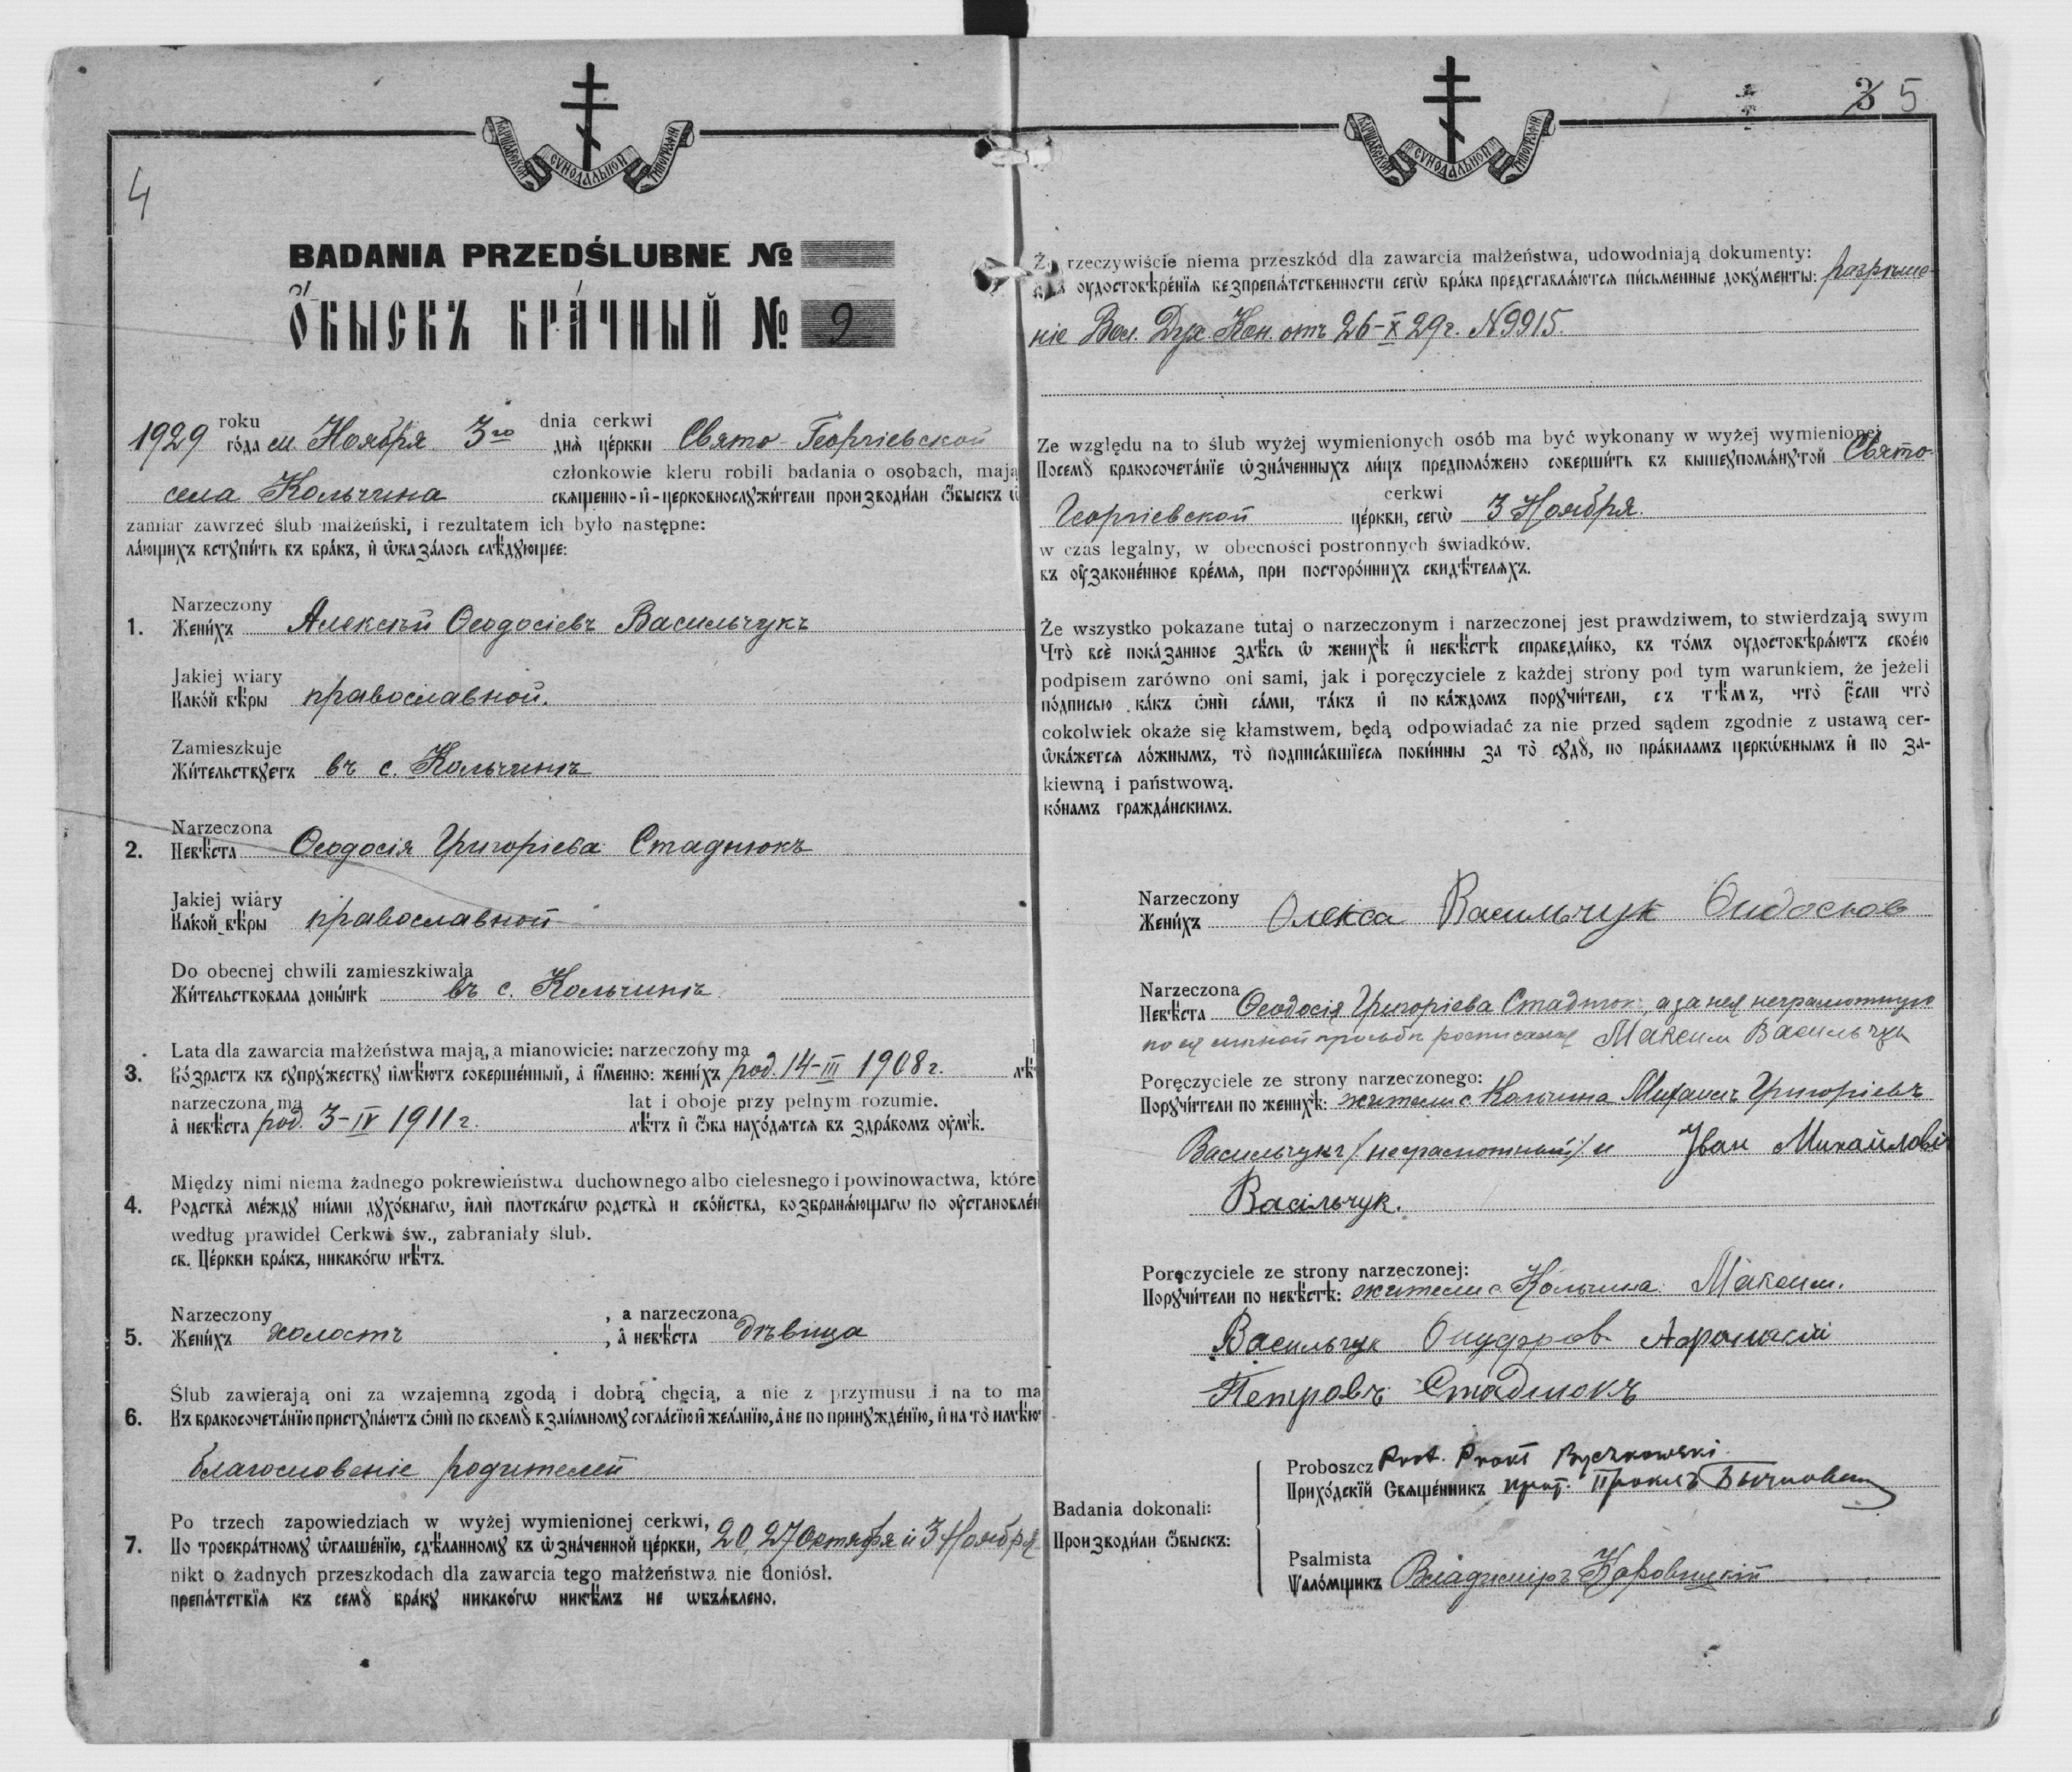 4
ВАРШАВСКОЙ СѴНОДАЛЬНОЙ ТИПОГРАФІИ
BADANIA PRZEDŚLUBNE №
Ѻ҆БЫСКЪ БРА́ЧНЫЙ № 2
1929 roku dnia cerkwi
го́да м. Ноября 3го дня̀ це́ркви Свято-Георгіевской
członkowie kleru robili badania o osobach, mają
села Кольчина свѧщенно-и҆-церковнослꙋжи́тели производи́ли ѻ҆́быскъ ѡ҆
zamiar zawrzeć ślub małżeński, i rezultatem ich było następne:
ла́ющихъ вступи́ть въ бра́къ, и҆ ѡ҆каза́лось слѣ́дꙋющее:
Narzeczony
1. Жени́хъ Алексѣй Ѳеодосіевъ Васильчукъ
Jakiej wiary
Како́й вѣ́ры православной.
Zamieszkuje
Жи́тельствꙋетъ въ с. Кольчинѣ
Narzeczona
2. Невѣ́ста Ѳеодосія Григоріева Стаднюкъ
Jakiej wiary
Како́й вѣ́ры православной
Do obecnej chwili zamieszkiwała
Жи́тельствовала доны́нѣ въ с. Кольчинѣ
Lata dla zawarcia małżeństwa mają, a mianowicie: narzeczony ma
3. Во́зрастъ къ сꙋпрꙋ́жествꙋ и҆мѣ́ютъ соверше́нный, а҆ и҆́менно: жени́хъ род. 14-III 1908 г. лѣ́
narzeczona ma lat i oboje przy pełnym rozumie.
а҆ невѣ́ста род. 3-IV 1911 г. лѣ́тъ и҆ ѻ҆́ба нахо́дѧтсѧ въ здра́вомъ ᲂу҆мѣ̀.
Między nimi niema żadnego pokrewieństwa duchownego albo cielesnego i powinowactwa, które
4. Родства̀ ме́ждꙋ ни́ми дꙋхо́внагѡ, и҆лѝ плотска́гѡ родства̀ и сво́йства, возбранѧ́ющагѡ по ᲂу҆становле́н
według prawideł Cerkwi św., zabraniały ślub.
св. Це́ркви бра́къ, никако́гѡ нѣ́тъ.
Narzeczony , a narzeczona
5. Жени́хъ холостъ , а҆ невѣ́ста дѣвица
Ślub zawierają oni za wzajemną zgodą i dobrą chęcią, a nie z przymusu i na to ma
6. Къ бракосочета́нїю пристꙋпа́ютъ ѻ҆нѝ по своемꙋ̀ взаи́мномꙋ согла́сїю и҆ жела́нїю, а҆ не по принꙋжде́нїю, и҆ на то̀ и҆мѣ́ю
благословеніе родителей
Po trzech zapowiedziach w wyżej wymienionej cerkwi,
7. По троекра́тномꙋ ѡ҆глаше́нїю, сдѣ́ланномꙋ въ ѡ҆зна́ченной це́ркви, 20, 27 Октября и 3 Ноября
nikt o żadnych przeszkodach dla zawarcia tego małżeństwa nie doniósł.
препѧ́тствїѧ къ семꙋ̀ бра́кꙋ никако́гѡ никѣ́мъ не ѡ҆бъѧ́влено.
3 5
ВАРШАВСКОЙ СѴНОДАЛЬНОЙ ТИПОГРАФІИ
Że rzeczywiście niema przeszkód dla zawarcia małżeństwa, udowodniają dokumenty:
ᲂу҆достовѣре́нїѧ безпрепѧ́тственности сегѡ̀ бра́ка представлѧ́ютсѧ пи́сьменные докꙋме́нты: разрѣше-
ніе Вол. Дух. Кон. отъ 26-X 29 г. N 9915.
Ze względu na to ślub wyżej wymienionych osób ma być wykonany w wyżej wymienionej
Посемꙋ̀ бракосочета́нїе ѡ҆зна́ченныхъ ли́цъ предполо́жено соверши́ть въ вышеупомѧ́нꙋтой Свято-
cerkwi
Георгіевской це́ркви, сегѡ̀ 3 Ноября.
w czas legalny, w obecności postronnych świadków.
въ ᲂу҆законе́нное вре́мѧ, при посторо́ннихъ свидѣ́телѧхъ.
Że wszystko pokazane tutaj o narzeczonym i narzeczonej jest prawdziwem, to stwierdzają swym
Что̀ всѐ пока́занное здѣ́сь ѡ҆ женихѣ̀ и҆ невѣ́стѣ справедли́во, въ то́мъ ᲂу҆достовѣрѧ́ютъ свое́ю
podpisem zarówno oni sami, jak i poręczyciele z każdej strony pod tym warunkiem, że jeżeli
по́дписью ка́къ ѻ҆нѝ са́ми, та́къ и҆ по ка́ждомъ порꙋчи́тели, съ тѣ́мъ, что̀ є҆́сли что̀
cokolwiek okaże się kłamstwem, będą odpowiadać za nie przed sądem zgodnie z ustawą cer-
ѡ҆ка́жетсѧ ло́жнымъ, то̀ подписа́вшїесѧ пови́нны за то̀ сꙋдꙋ̀, по пра́виламъ церкѡ́внымъ и҆ по за-
kiewną i państwową.
ко́намъ гражда́нскимъ.
Narzeczony
Жени́хъ Олекса Васильчук
Narzeczona
Невѣ́ста Ѳеодосія Григоріева Стаднюкъ, а за нея неграмотную
по ея личной просьбѣ росписался Максим Васильчук
Poręczyciele ze strony narzeczonego:
Порꙋчи́тели по женихѣ̀: жители с. Кольчина Михаилъ Григоріевъ
Васильчукъ /неграмотный/ и Јван Михайлові
Васільчук.
Poręczyciele ze strony narzeczonej:
Порꙋчи́тели по невѣ́стѣ: жители с. Кольчина Максим.
Васильчук
Петровъ Стаднюкъ
Badania dokonali:
Производи́ли ѻ҆́быскъ:
Proboszcz Prot. Prokl Byczkowski
Прихо́дскїй Свѧще́нникъ прот. Проклъ Бычковскій
Psalmista
Ѱало́мщикъ Владимиръ